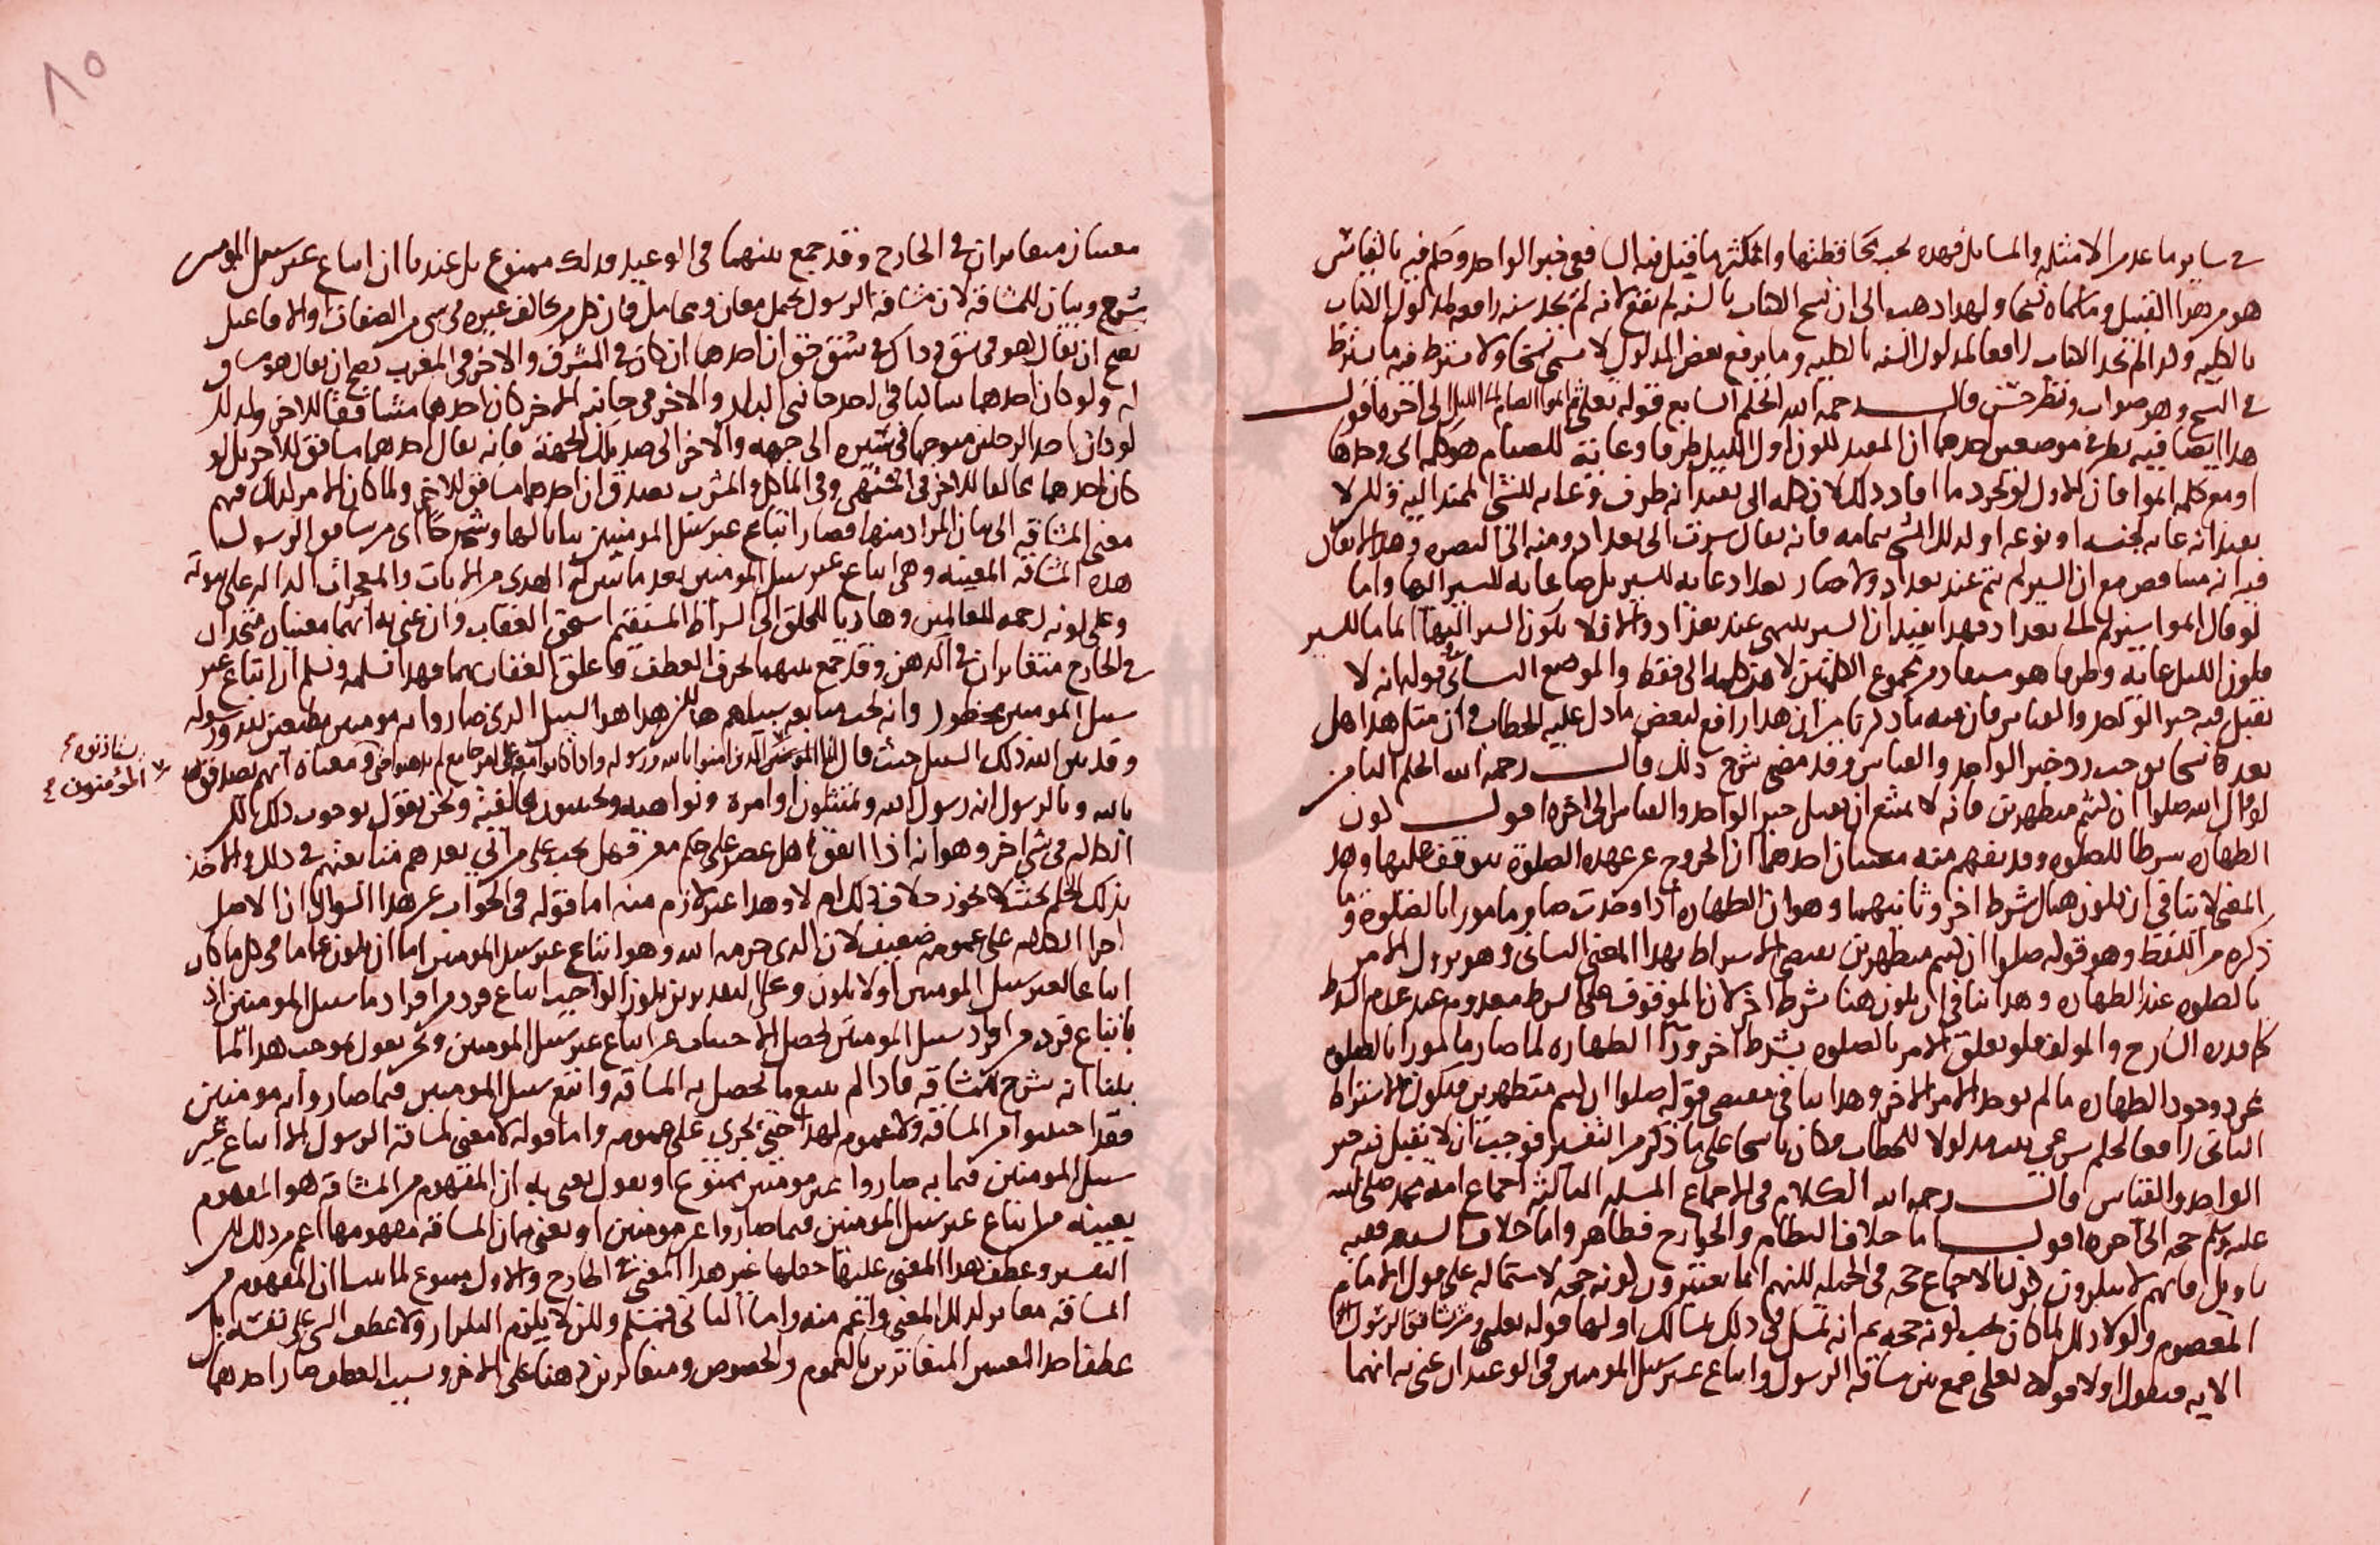 في ساير ما عد من الامثله والمسايل فهذه يجب محافظتها واتمكثر ما قيل فيه الشافعي خبر الواحد وحكم فيه بالقياس
هو من هذا القبيل وما سماه نسخا ولهذا ذهب الى ان نسخ الكتاب بالسنه لم يقع لانه لم يجد سنه رافعه لمدلول الكتاب
بالكليه ولذا لم يجد الكتاب رافعا لمدلول السنه بالكليه وما يرفع بعض المدلول لا يسمى نسخا ولا يشترط فيه ما يشترط
في النسخ وهو صواب ونظر حسن قال رحمه الله الحكم السابع قوله تعلى ثم اتموا الصيام الى الليل الى اخره اقول
هذا ايضا فيه نظر في موضعين احدهما ان المفيد لكون اول الليل طرفا وغاية للصيام هو كلمة الى وحدها
او مع كلمه اتموا فان الاول لو تجرد ما افاد ذلك لان كلمه الى يفيد انه طرف وغايه للشي الممتد اليه ولكن لا
يفيد انه غايه لجنسه او نوعه او لذلك الشي بتمامه فانه يقال سرت الى بغداد ومنه الى البصره وهذا لا يقال
فيه انه متناقض مع ان السير لم يتم عند بغداد ولا صار بغداد غايه للسير بل صار غايه للسير اليها واما
لو قال اتموا سيركم الى بغداد فهذا يفيد ان السير ينتهي عند بغداد والا فلا يكون السير اليها اتماما للسير
فكون الليل غايه وطرفا هو مستفاد من مجموع الكلمتين لا من كلمه الى فقط والموضع الثاني قوله انه لا
يقبل فيه خبر الواحد والقياس فان فيه ما ذكرنا من ان هذا رافع لبعض ما دل عليه الخطاب وان مثل هذا هل
يعد ناسخا يوجب رد خبر الواحد والقياس وقد مضى شرح ذلك قال رحمه الله الحكم الثامن
لو قال الله صلوا ان كنتم متطهرين فانه لا يمتنع ان يقبل خبر الواحد والقياس الى اخره اقول كون
الطهاره شرطا للصلوه وقد يفهم منه معنيان احدهما ان الخروج عن عهده الصلوة يتوقف عليها وهذا
المعنى لا ينافي ان يكون هناك شرط اخر وثانيهما وهو ان الطهاره اذا وجدت صار مامورا بالصلوة وما
ذكره من اللفظ وهو قوله صلوا ان كنتم متطهرين يقتضي الاشتراط بهذا المعنى الثاني وهو نزول الامر
بالصلوه عند الطهاره وهذا ينافي ان يكون هنا شرط اخر لان الموقوف على الشرط معدوم عند عدم الشرط
كم قدره الشارح والمولف فلو تعلق الامر بالصلوه بشرط اخر ورآ الطهاره لما صار مامورا بالصلوه
بمجرد وجود الطهاره ما لم يوجد الامر الاخر وهذا ينافي مقتضى قوله صلوا ان كنتم متطهرين فيكون الاشتراط
الثاني رافعا لحكم شرعي يعد مدلولا للخطاب فكان ناسخا على ما ذكر من التفسير فوجب ان لا يقبل فيه خبر
الواحد والقياس قال رحمه الله الكلام في الاجماع المسله الثالثه اجماع امة محمد صلى الله
عليه وسلم حجه الى اخره اقول اما خلاف النظام والخوارج فظاهر واما خلاف الشيعه ففيه
تاويل فانهم لا ينكرون كون الاجماع حجه في الجمله لكنهم انما يعتبرون كونه حجه لاشتماله على قول الامام
المعصوم ولولا ذلك لما كان يجب كونه حجه ثم انه تمسك في ذلك بمسالك اولها قوله تعلى ومن يشاقق الرسول
الايه فنقول اولا قوله تعلى جمع بين مشاقه الرسول واتباع غير سبيل المومنين في الوعيد ان عنى به انهما
٨٥
معنيان متغايران في الخارج وقد جمع بينهما في الوعيد فذلك ممنوع بل عندنا ان اتباع غير سبيل المومنين
شرح وبيان للمشاقه لان مشاقه الرسول يحمل معان ومحامل فان كل من يخالف غيره في شي من الصفات او الافاعيل
يصح ان يقال هو في شق وذاك في شق حتى ان احدهما ان كان في المشرق والاخر في المغرب يصح ان يقال هو مشاق
له ولو كان احدهما ساكنا في احد جانبي البلد والاخر في جانبه الاخر كان احدهما مشاققا للاخر ولذلك
لو كان احد الرجلين متوجها في سيره الى جهه والاخر الى ضد تلك الجهة فانه يقال احدهما مشاقق للاخر بل لو
كان احدهما مخالفا للاخر في المشتهى وفي الماكل والمشرب يصدق ان احدهما مشاقق للاخر ولما كان الامر كذلك فهم
معنى المشاقه الى بيان المراد منها فصار اتباع غير سبيل المومنين بيانا لها وشرحا اي من يشاقق الرسول
هذه المشاقه المعينه وهي اتباع غير سبيل المومنين بعد ما تبين له الهدى من الايات والمعجزات الداله على نبوته
وعلى كونه رحمه للعالمين وهاديا للخلق الى السراط المستقيم استحق العقاب وان عنى به انهما معنيان متحدان
في الخارج متغايران في الذهن وقد جمع بينهما بحرف العطف وما علق العقاب بهما فهذا نسلمه ونسلم ان اتباع غير
سبيل المومنين محظور وانه يجب متابعه سبيلهم هذا لكن هذا هو السبيل الذي صاروا به مومنين مطيعين لله ورسوله
وقد بين الله ذلك السبيل حيث قال انما المومنون الذين امنوا بالله ورسوله واذا كانوا معه على امر جامع لم يذهبوا حتى ومعناه انهم يصدقون
يستاذنوه
المؤمنون
بالله وبالرسول انه رسول الله ويمتثلون اوامره ونواهيه ويجتنبون مخالفته ونحن نقول بوجوب ذلك لكن
الكلام في شي اخر وهو انه اذا اتفق اهل عصر على حكم معرفة هل يجب على من اتي بعدهم متابعتهم في ذلك والاخذ
بذلك الحكم بحيث لا يجوز خلاف ذلك ام لا وهذا غير لازم منه اما قوله في الجواب عن هذا السوال ان الاصل
اجرا الكلام على عمومه ضعيف لان الذي حرمه الله وهو اتباع غير سبيل المومنين اما ان يكون عاما في كل ما كان
اتباعا لغير سبيل المومنين او لا يكون وعلى التقديرين يكون الواجب اتباع فرد من افراد ما سبيل المومنين اذ
باتباع فرد من افراد سبيل المومنين يحصل الاجتناب عن اتباع غير سبيل المومنين ونحن نقول بموجب هذا لما
بينا انه شرح للمشاقه فاذا لم يتبع ما يحصل به المشاقه واتبع سبيل المومنين فيما صاروا به مومنين
فقد اجتنبوا من المشاقه ولا عموم لهذا حتى يجري على عمومه واما قوله لا معنى لمشاقه الرسول الا اتباع غير
سبيل المومنين فيما به صاروا غير مومنين ممنوع او نقول نعني به ان المفهوم من المشاقه هو المفهوم
بعينه من اتباع غير سبيل المومنين فيما صاروا غير مومنين او يعني بان المشاقه مفهومها اعم من ذلك لكن
التفسير وعطف هذا المعنى عليها جعلها غير هذا المعنى في الخارج والاول ممنوع لما بينا ان المفهوم من
المشاقه مغاير لذلك المعنى واعم منه واما الثاني فمسلم ولكن لا يلزم التكرار ولا عطف الشي على نفسه بل
عطف احد المعنيين المتغايرين بالعموم والخصوص ومتغايرين ذهنا على الاخر وبسبب العطف صار احدهما